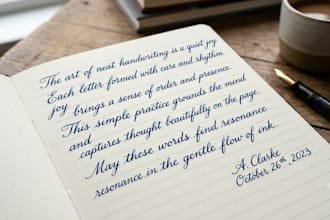 The art of neat handwriting is a quiet joy
Each letter formed with care and rhythm
joy brings a sense of order and presence
This simple practice grounds the mind
and captures thought beautifully on the page.
May these words find resonance
resonance in the gentle flow of ink.
A. Clarke
October 26th, 2023